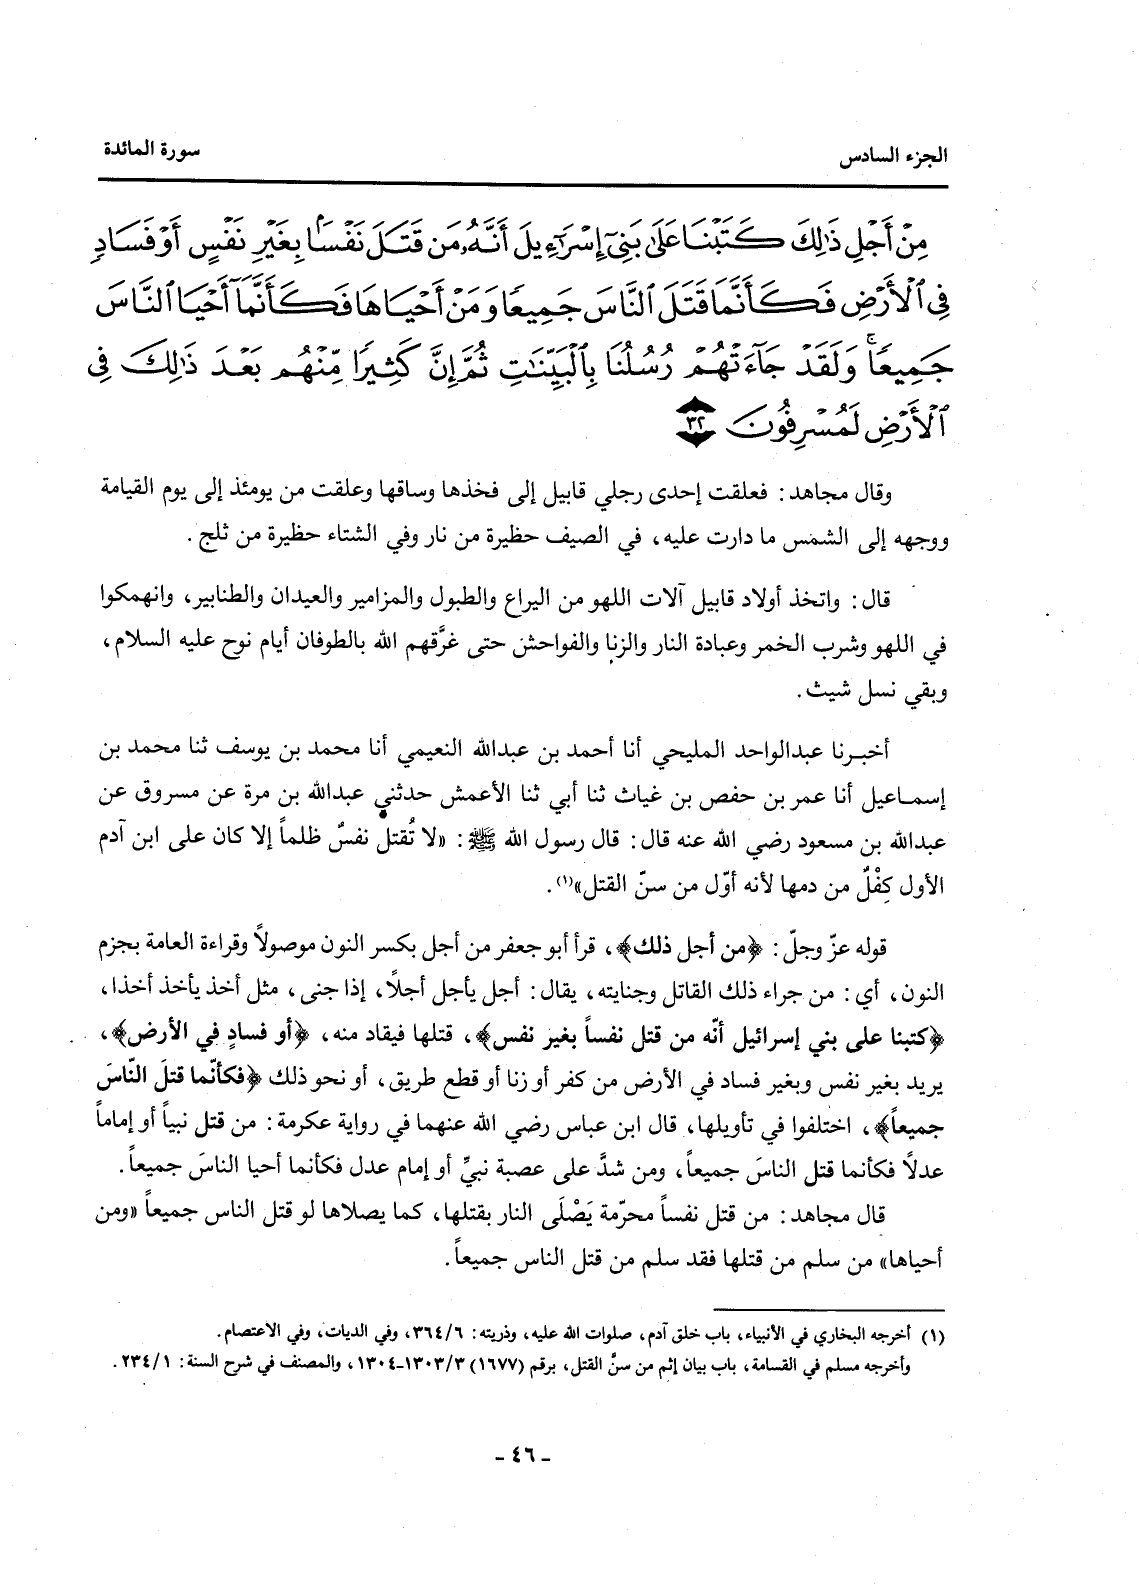 الجزء السادس
سورة المائدة
مِنْ أَجْلِ ذَٰلِكَ كَتَبْنَا عَلَىٰ بَنِىٓ إِسْرَٰٓءِيلَ أَنَّهُۥ مَن قَتَلَ نَفْسًۢا بِغَيْرِ نَفْسٍ أَوْ فَسَادٍ
فِى ٱلْأَرْضِ فَكَأَنَّمَا قَتَلَ ٱلنَّاسَ جَمِيعًا وَمَنْ أَحْيَاهَا فَكَأَنَّمَآ أَحْيَا ٱلنَّاسَ
جَمِيعًا ۚ وَلَقَدْ جَآءَتْهُمْ رُسُلُنَا بِٱلْبَيِّنَٰتِ ثُمَّ إِنَّ كَثِيرًا مِّنْهُم بَعْدَ ذَٰلِكَ فِى
ٱلْأَرْضِ لَمُسْرِفُونَ ٣٢
وقال مجاهد: فعلقت إحدى رجلي قابيل إلى فخذها وساقها وعلقت من يومئذ إلى يوم القيامة
ووجهه إلى الشمس ما دارت عليه، في الصيف حظيرة من نار وفي الشتاء حظيرة من ثلج.
قال: واتخذ أولاد قابيل آلات اللهو من اليراع والطبول والمزامير والعيدان والطنابير، وانهمكوا
في اللهو وشرب الخمر وعبادة النار والزنا والفواحش حتى غرَّقهم الله بالطوفان أيام نوح عليه السلام،
وبقي نسل شيث.
أخبرنا عبدالواحد المليحي أنا أحمد بن عبدالله النعيمي أنا محمد بن يوسف ثنا محمد بن
إسماعيل أنا عمر بن حفص بن غياث ثنا أبي ثنا الأعمش حدثني عبدالله بن مرة عن مسروق عن
عبدالله بن مسعود رضي الله عنه قال: قال رسول الله ﷺ: «لا تُقتل نفسٌ ظلماً إلا كان على ابن آدم
الأول كِفْلٌ من دمها لأنه أوّل من سنّ القتل»(١).
قوله عزّ وجلّ: ﴿من أجل ذلك﴾، قرأ أبو جعفر من أجل بكسر النون موصولاً وقراءة العامة بجزم
النون، أي: من جراء ذلك القاتل وجنايته، يقال: أجل يأجل أجلاً، إذا جنى، مثل أخذ يأخذ أخذا،
﴿كتبنا على بني إسرائيل أنّه من قتل نفساً بغير نفس﴾، قتلها فيقاد منه، ﴿أو فسادٍ في الأرض﴾،
يريد بغير نفس وبغير فساد في الأرض من كفر أو زنا أو قطع طريق، أو نحو ذلك ﴿فكأنّما قتلَ النّاسَ
جميعاً﴾، اختلفوا في تأويلها، قال ابن عباس رضي الله عنهما في رواية عكرمة: من قتل نبياً أو إماماً
عدلاً فكأنما قتل الناسَ جميعاً، ومن شدَّ على عصبة نبيٍّ أو إمام عدل فكأنما أحيا الناسَ جميعاً.
قال مجاهد: من قتل نفساً محرّمة يَصْلَى النار بقتلها، كما يصلاها لو قتل الناس جميعاً «ومن
أحياها» من سلم من قتلها فقد سلم من قتل الناس جميعاً.
(١) أخرجه البخاري في الأنبياء، باب خلق آدم، صلوات الله عليه، وذريته: ٣٦٤/٦، وفي الديات، وفي الاعتصام.
وأخرجه مسلم في القسامة، باب بيان إثم من سنَّ القتل، برقم (١٦٧٧) ١٣٠٣/٣-١٣٠٤، والمصنف في شرح السنة: ٢٣٤/١.
- ٤٦ -